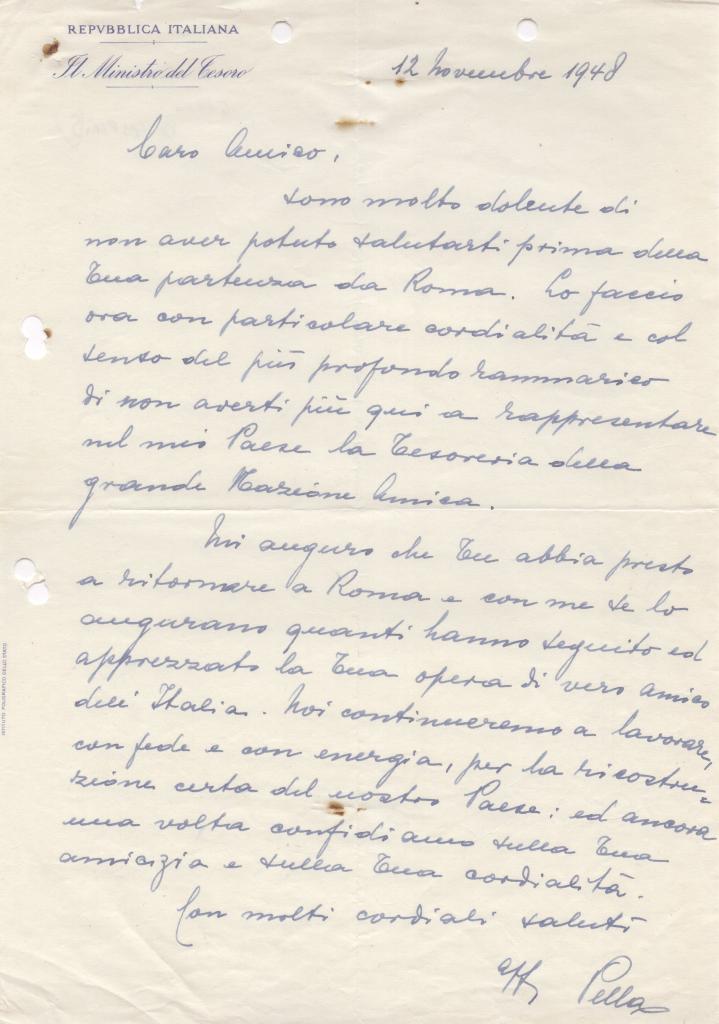 REPVBBLICA ITALIANA
Il Ministro del Tesoro
12 novembre 1948
Caro Amico,
sono molto dolente di
non aver potuto salutarti prima della
Tua partenza da Roma. Lo faccio
ora con particolare cordialità e col
senso del più profondo rammarico
di non averti più qui a rappresentare
nel mio Paese la Tesoreria della
grande Nazione Amica.
Mi auguro che Tu abbia presto
a ritornare a Roma e con me se lo
augurano quanti hanno seguito ed
apprezzato la Tua opera di vero amico
dell'Italia. Noi continueremo a lavorare,
con fede e con energia, per la ricostru=
zione certa del nostro Paese: ed ancora
una volta confidiamo sulla Tua
amicizia e sulla Tua cordialità.
Con molti cordiali saluti
aff. Pella
ISTITUTO POLIGRAFICO DELLO STATO